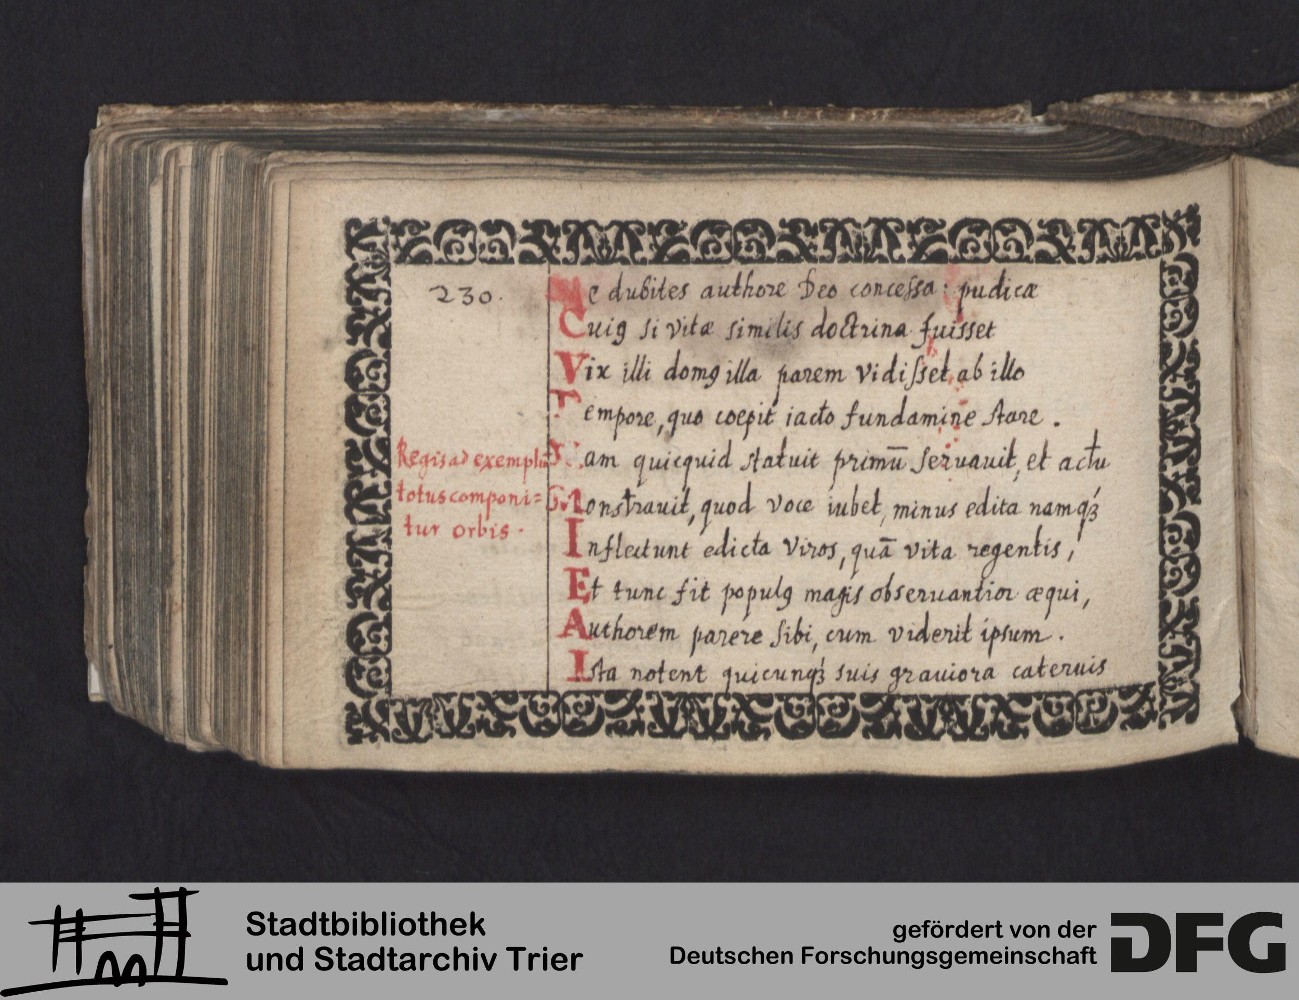 230.
Ne dubites authore Deo concessa: pudicæ
Cuiꝯ si vitæ similis doctrina fuisset
Vix illi domꝯ illa parem vidisset ab illo
Tempore, quo coepit iacto fundamine stare.
Nam quicquid statuit primū seruauit, et actu
Monstrauit, quod voce iubet, minus edita namqꝫ
Inflectunt edicta viros, quā vita regentis,
Et tunc fit populꝯ magis obseruantior æqui,
Authorem parére sibi, cum viderit ipsum.
Ista notent quicunqꝫ suis grauiora cateruis
Regis ad exemplū
totus componi=
tur orbis.
Stadtbibliothek
und Stadtarchiv Trier
gefördert von der
Deutschen Forschungsgemeinschaft
DFG